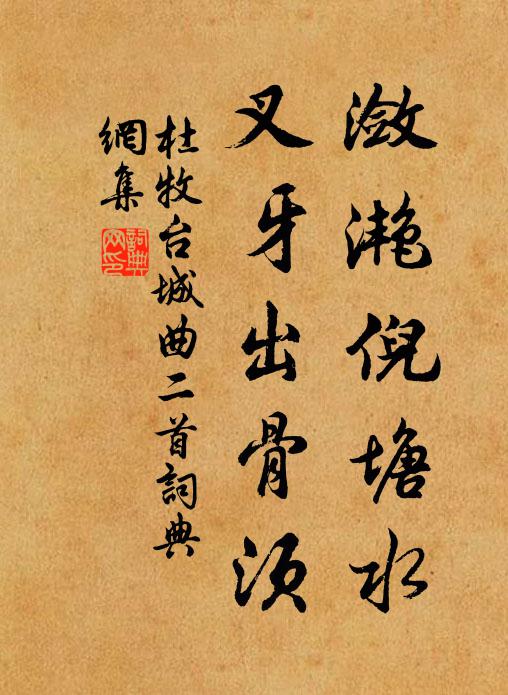 潋滟倪塘水
叉牙出骨须
杜牧台城曲二首詞典
網集
詞典
网印